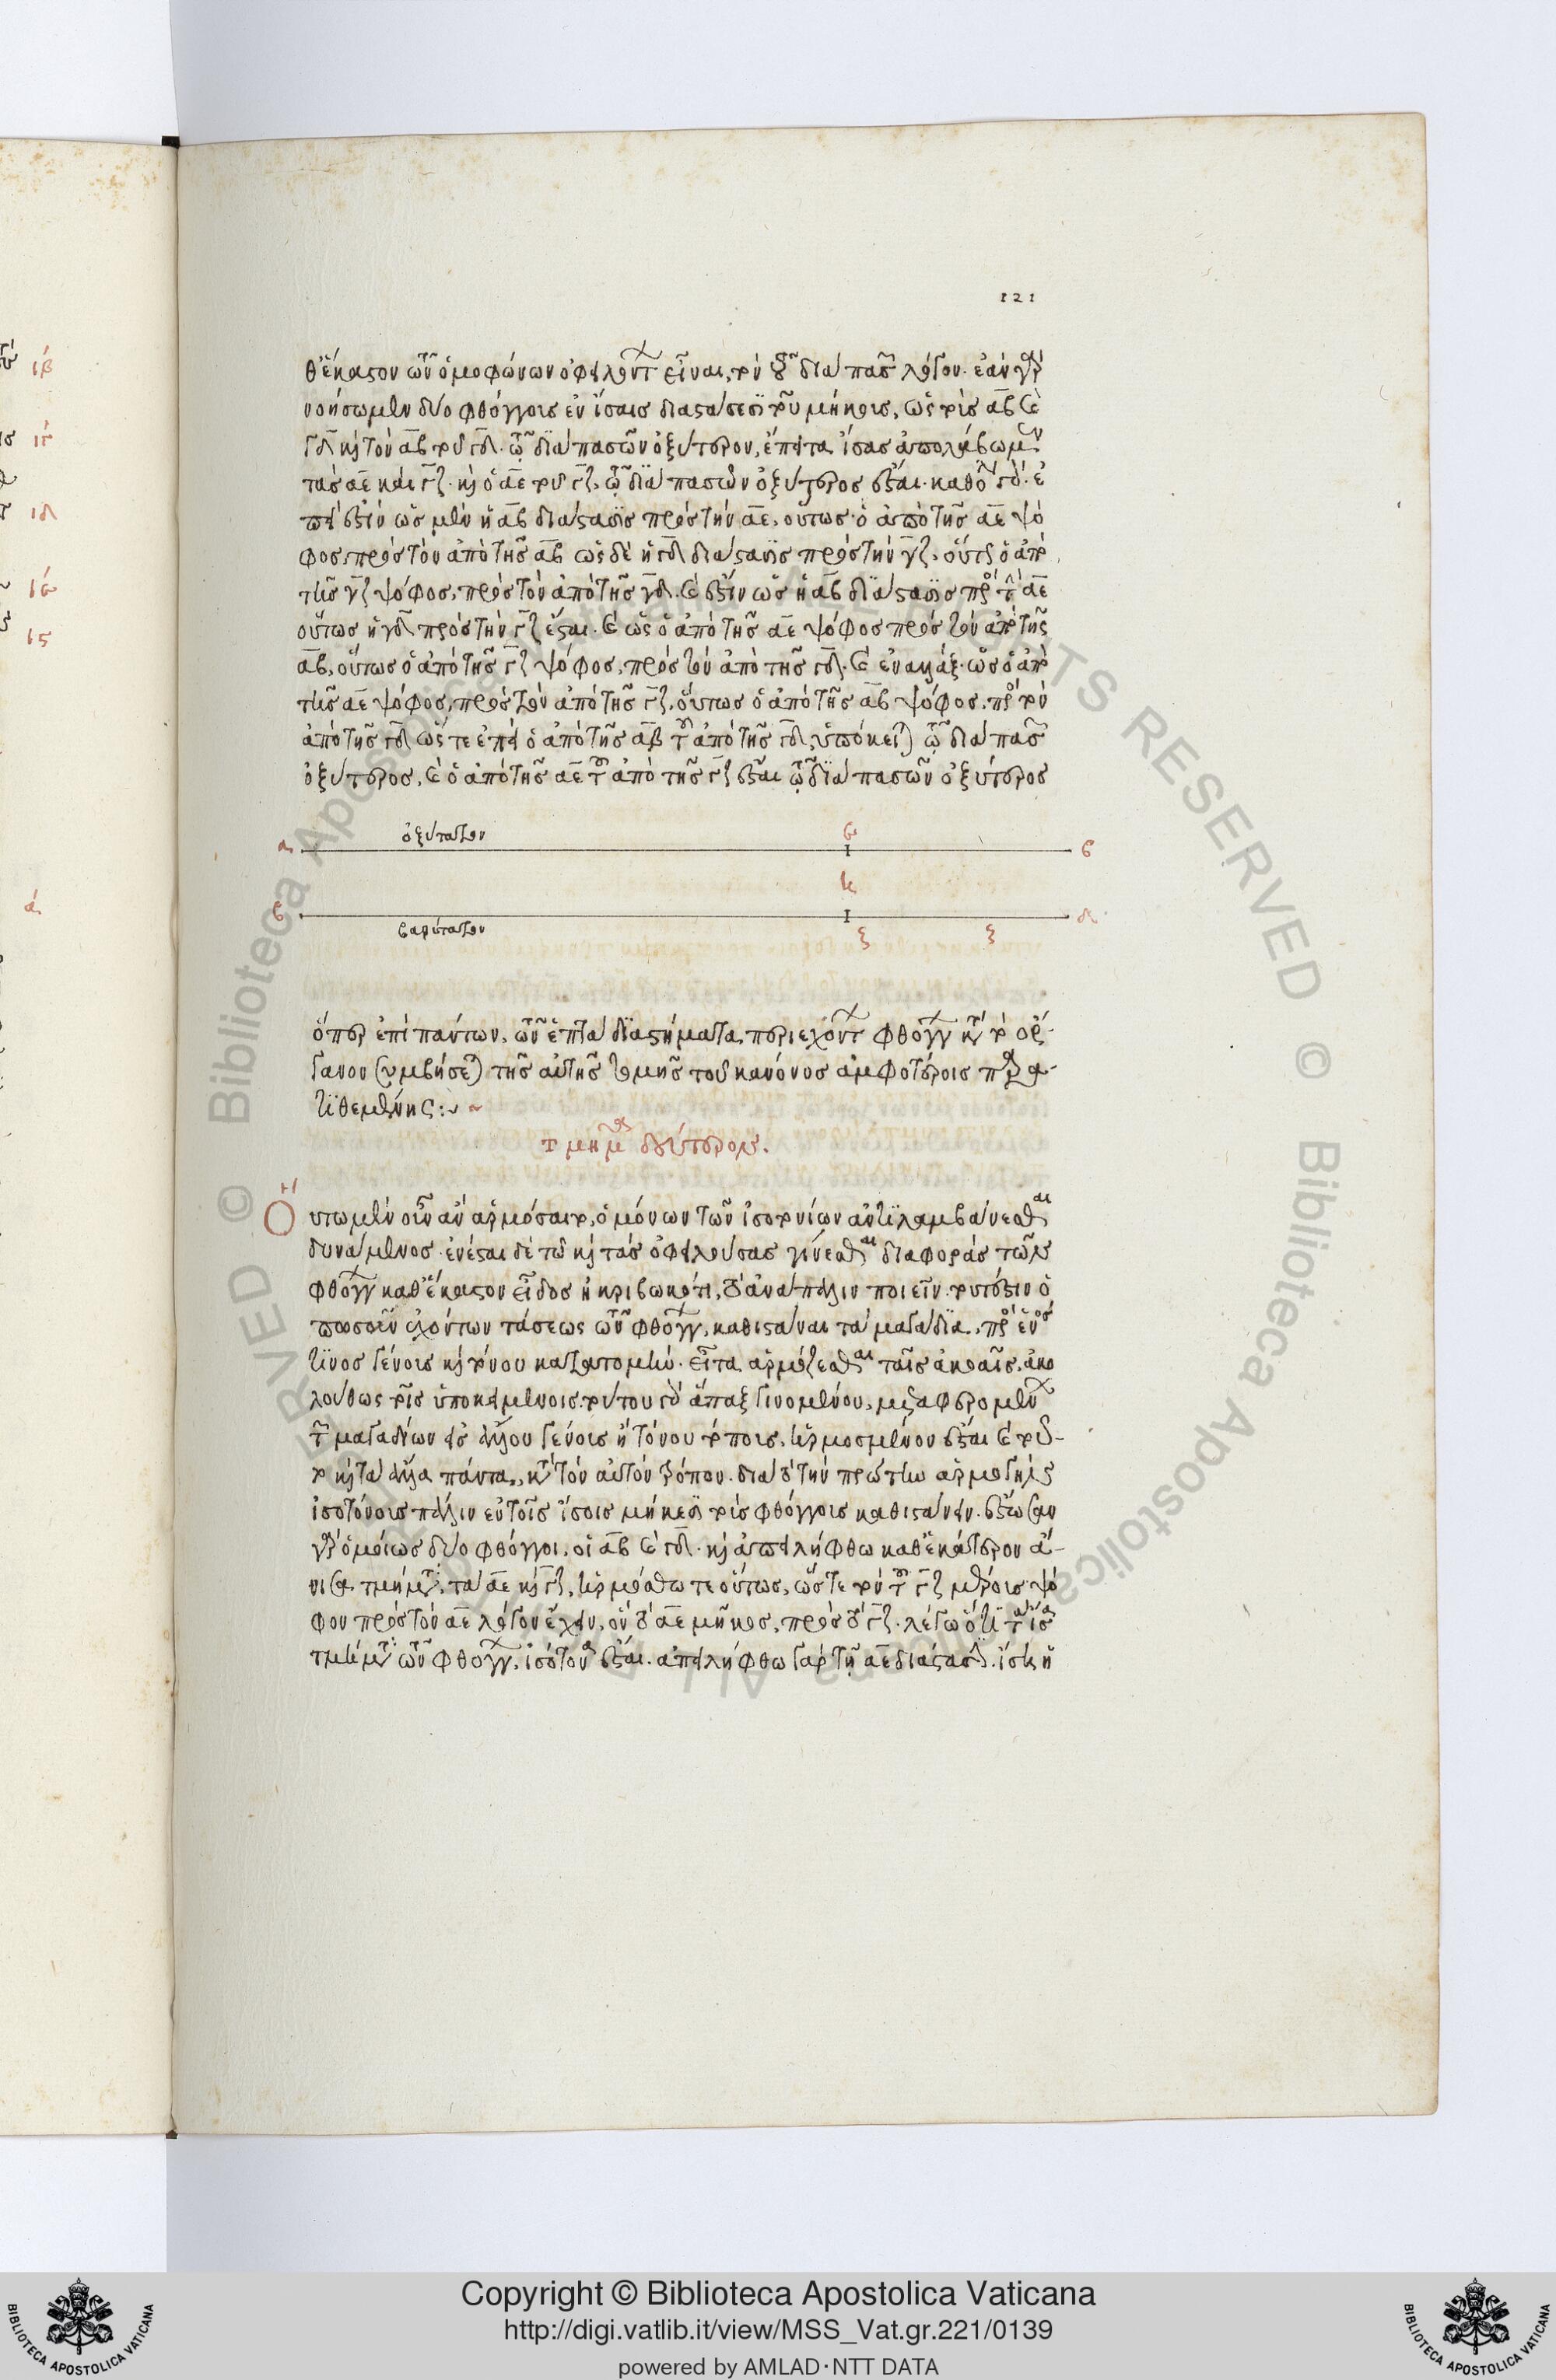 121
θ' ἕκαστον τῶν ὁμοφώνων ὀφείλοντ εἶναι, τὸν τοῦ διὰ πασ λόγον. ἐὰν γὰρ
νοήσωμεν δύο φθόγγοις ἐν ἴσαις διαστάσεσι τοῦ μήκους, ὡς τοῖς αβ καὶ
γδ καὶ τὸν αβ τοῦ γδ. τῷ διὰ πασῶν ὀξύτερον, ἔπειτα ἴσας ἀπολάβωμεν
τὰς αε καὶ γζ. καὶ ὁ αε τοῦ γζ, τῷ διὰ πασῶν ὀξύτερος ἔσται.
ἐστὶν ὡς μὲν ἡ αβ διάστασις πρὸς τὴν αε, οὕτως ὁ ἀπὸ τῆς αε ψό
φος, πρὸς τὸν ἀπὸ τῆς αβ ὡς δὲ ἡ γδ διάστασις πρὸς τὴν γζ, οὕτως ὁ ἀπὸ
τῆς γζ ψόφος, πρὸς τὸν ἀπὸ τῆς γδ. καὶ ἔστιν ὡς ἡ αβ διάστασις πρὸς τὴν αε
οὕτως ἡ γδ πρὸς τὴν γζ ἔσται. καὶ ὡς ὁ ἀπὸ τῆς αε ψόφος πρὸς τὸν ἀπὸ τῆς
αβ, οὕτως ὁ ἀπὸ τῆς γζ ψόφος, πρὸς τὸν ἀπὸ τῆς γδ. καὶ ἐναλλάξ. ὡς ὁ ἀπὸ
τῆς αε ψόφος, πρὸς τὸν ἀπὸ τῆς γζ, οὕτως ὁ ἀπὸ τῆς αβ ψόφος, πρὸς τὸν
ἀπὸ τῆς γδ ὥστε ἐπεὶ ὁ ἀπὸ τῆς αβ τοῦ ἀπὸ τῆς γδ, ὑπόκειται τῷ διὰ πασ
ὀξύτερος, καὶ ὁ ἀπὸ τῆς αε τοῦ ἀπὸ τῆς γζ ἔσται τῷ διὰ πασῶν ὀξύτερος
ὀξύτατον
α β
βαρύτατον
ξ ξ
ὅπερ ἐπὶ πάντων, τῶν ἑπτὰ διαστήματα, περιεχόντ φθόγγ κατὰ τὸ ὄρ-
γανον συμβήσεται τῆς αὐτῆς τομῆς τοῦ κανόνος ἀμφοτέροις παρα-
τιθεμένης:~
τμῆμα δεύτερον.
Οὕτω μὲν οὖν ἂν ἁρμόσαιτο, ὁ μόνων τῶν ἰσοτονίων ἀντιλαμβάνεσθαι
δυνάμενος. ἐνέσται δὲ τῷ καὶ τὰς ὀφειλούσας γίνεσθαι διαφορὰς τῶν
φθόγγ καθ' ἕκαστον εἶδος ἠκριβωκότι, τὸ ἀνάπαλιν ποιεῖν. τουτέστιν ὁ
ποσοῦν ἐχόντων τάσεως τῶν φθόγγ, καθιστάναι τὰ μαγάδια, πρὸς ἑνός
τινος γένους καὶ τόνου κατατομήν. εἶτα ἁρμόζεσθαι ταῖς ἀκοαῖς, ἀκο
λούθως τοῖς ὑποκειμένοις. τούτου γὰρ ἅπαξ γινομένου, μεταφερομέν
τῶν μαγαδίων εἰς ἄλλου γένους ἢ τόνου τόπους, ἡρμοσμένον ἔσται καὶ τοῦ-
το καὶ τὰ ἄλλα πάντα, κατὰ τὸν αὐτὸν τρόπον. διὰ τὸ τὴν πρώτην ἁρμογὴν
ἰσοτόνοις πάλιν ἐν τοῖς ἴσοις μήκεσι τοῖς φθόγγοις καθιστάνειν. ἔστωσαν
γὰρ ὁμοίως δύο φθόγγοι, οἱ αβ καὶ γδ. καὶ ἀπειλήφθω καθ' ἑκάτερον ἄ-
νισα τμήματα, τὰ αε καὶ γζ, ἡρμόσθω τε οὕτως, ὥστε τὸν τοῦ γζ μέρους ψό
φον πρὸς τὸν αε λόγον ἔχειν, ὃν τὸ αε μῆκος, πρὸς τὸ γζ. λέγω ὅτι τὰ ἴσα
τμήματα τῶν φθόγγ, ἰσότονα ἔσται. ἀπειλήφθω γὰρ τῇ αε διαστάσει. ἴση ἡ
Copyright © Biblioteca Apostolica Vaticana
http://digi.vatlib.it/view/MSS_Vat.gr.221/0139
powered by AMLAD·NTT DATA